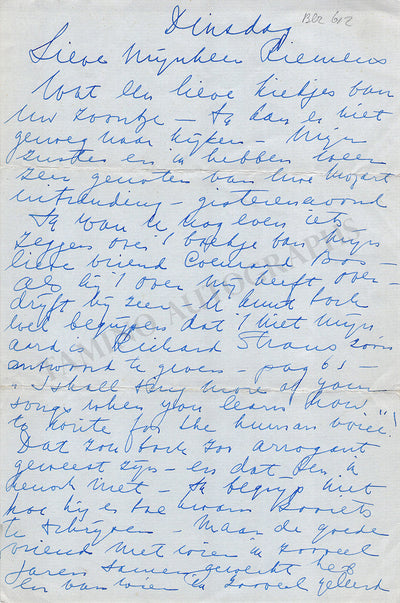 Dinsdag
Blz 6/2
Lieve Mijnheer Riemens
Wat een lieve kiekjes van
Uw zoontje – Ik kan er niet
genoeg naar kijken – Mijn
zuster en ik hebben weer
zeer genoten van Uwe Mozart
uitzending – gisterenavond
Ik wou U nog even iets
zeggen over 't boekje van mijn
lieve vriend Coenraad Bos –
Als hij 't over mij heeft over-
drijft hij zeer – U kunt toch
wel begrijpen dat 't niet mijn
aard is Richard Strauss zoo'n
antwoord te geven – pag 65 –
"I shall sing more of your
songs when you learn how
to write for the human voice"!
Dat zou toch zoo arrogant
geweest zijn – en dat ben ik
heusch niet – Ik begrijp niet
hoe hij er toe kwam zooiets
te schrijven – Maar de goede
vriend met wien ik zooveel
jaren samen gewerkt heb
en van wien ik zooveel geleerd
TAMINO AUTOGRAPHS